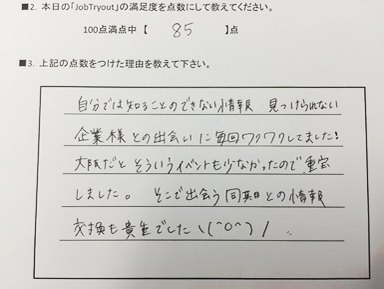 ■2. 本日の「JobTryout」の満足度を点数にして教えてください。
100点満点中【 85 】点
■3. 上記の点数をつけた理由を教えて下さい。
自分では知ることのできない情報 見つけられない
企業様との出会いに毎回ワクワクしてました!
大阪だとそういうイベントも少なかったので重宝
しました。 そこで出会う同期との情報
交換も貴重でした \(^o^)/